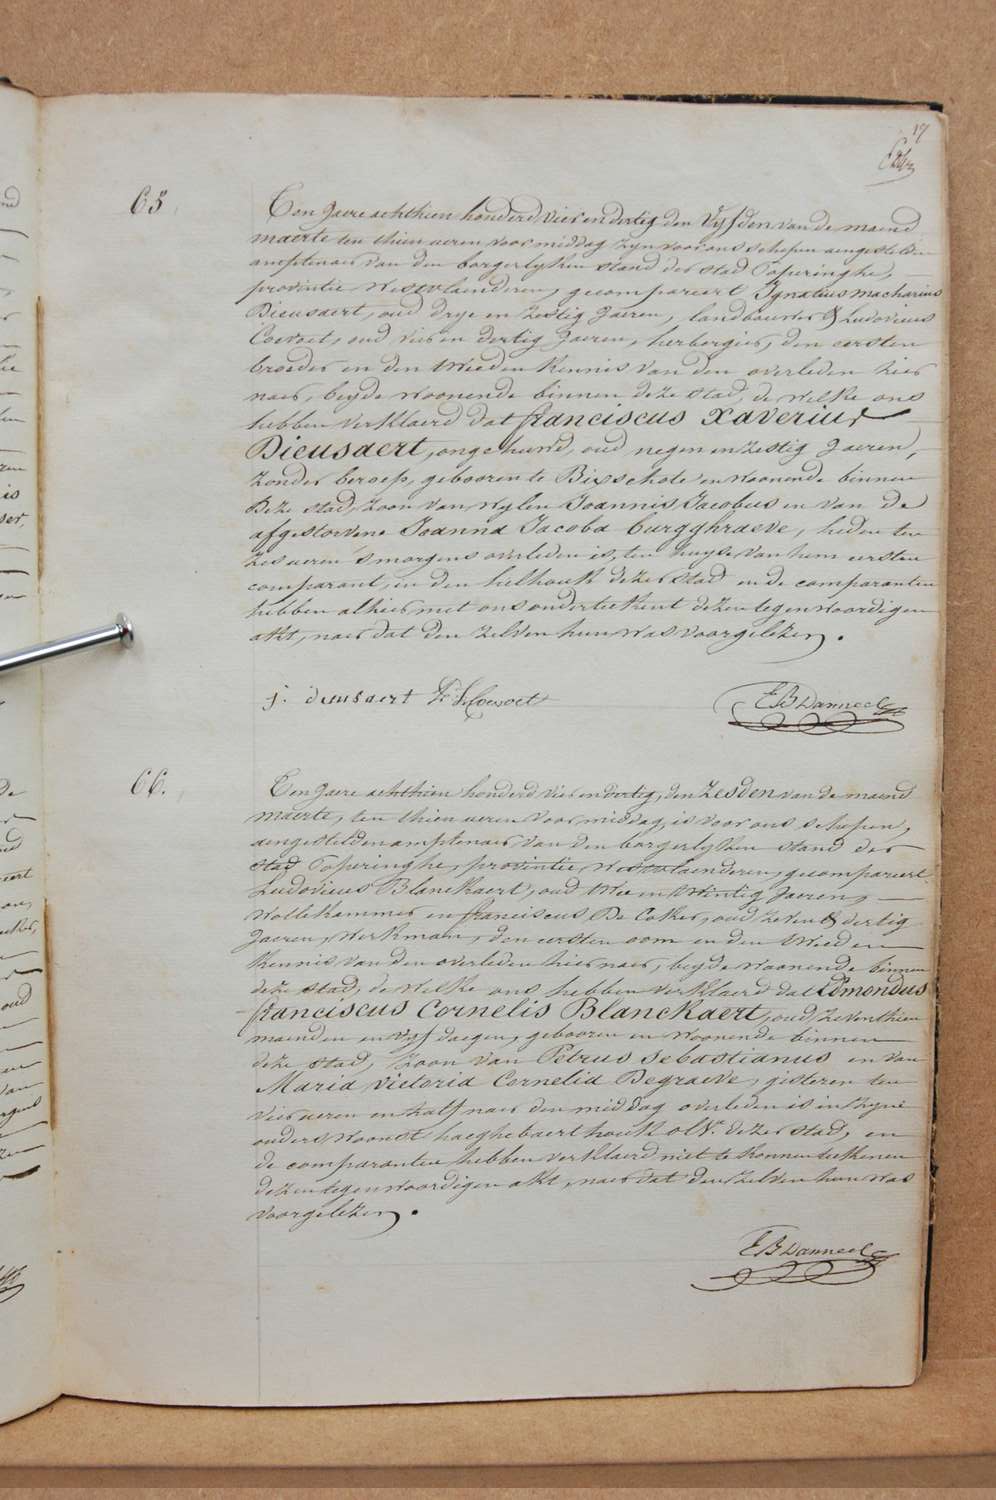 17
65
Ten Jaere achthien honderd vier en dertig den Vyfden van de maend
maerte ten thien ueren voormiddag zyn voor ons schepen aengestelden
amptenaer van den borgerlyken stand der stad Poperinghe,
provintie Westvlaenderen, gecompareert Ignatius Macharius
Dieusaert, oud drye en zestig Jaeren, landbouwer & Ludovicus
Coevoet, oud vier en dertig Jaeren, herbergier, den eersten
broeder en den tweeden kennis van den overleden hier
naer, beyde woonende binnen deze stad, de welke ons
hebben verklaerd dat franciscus Xaverius
Dieusaert, ongehuwd, oud negen en zestig Jaeren,
zonder beroep, gebooren te Bixschote en woonende binnen
deze stad, zoon van wylen Joannis Jacobus en van de
afgestorvene Joanna Jacoba burgghraeve, heden ten
zes ueren 's morgens overleden is, ten huyse van hem eersten
comparant, in den helhouk dezer stad en de comparanten
hebben alhier met ons onderteekent dezen tegenwoordigen
akt, naer dat den zelven hun was voorgelezen.
j. dieusaert L Coevoet
E B Danneel
66.
Ten Jaere achthien honderd vier en dertig, den zesden van de maend
maerte, ten thien ueren voormiddag, is voor ons schepen,
aengestelden amptenaer van den borgerlyken stand der
stad Poperinghe, provintie Westvlaenderen, gecompareert
Ludovicus Blanckaert, oud twee en twintig Jaeren,
wollekammer en franciscus De Coker, oud zeven & dertig
Jaeren, werkman, den eersten oom en den tweeden
kennis van den overleden hier naer, beyde woonende binnen
deze stad, de welke ons hebben verklaerd dat Edmondus
franciscus Cornelis Blanckaert, oud zeventhien
maenden en vyf daegen, gebooren en woonende binnen
deze stad, zoon van Petrus Sebastianus en van
Maria Victoria Cornelia Degraeve, gisteren ten
vier ueren en half naer den middag overleden is in zyne
ouders woonst haeghebaert houk dezer stad, en
de comparanten hebben verklaerd niet te konnen teekenen
dezen tegenwoordigen akt, naer dat den zelven hun was
voorgelezen.
E B Danneel